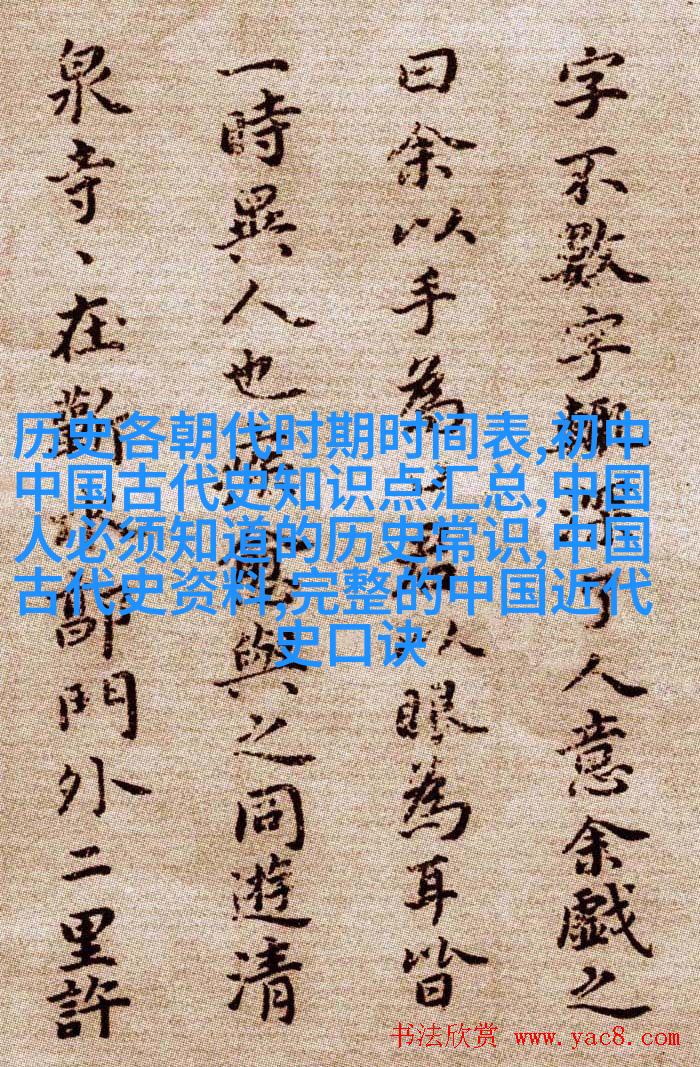 字不數字了人意余戲之
曰余以手為以眼為耳皆
一時異人也與之同遊清
泉寺、在蘄郭門外二里許
历史各朝代时期时间表,初中
中国古代史知识点汇总,中国
人必须知道的历史常识,中国
古代史资料,完整的中国近代
史口诀
书法欣赏 www.yac8.com